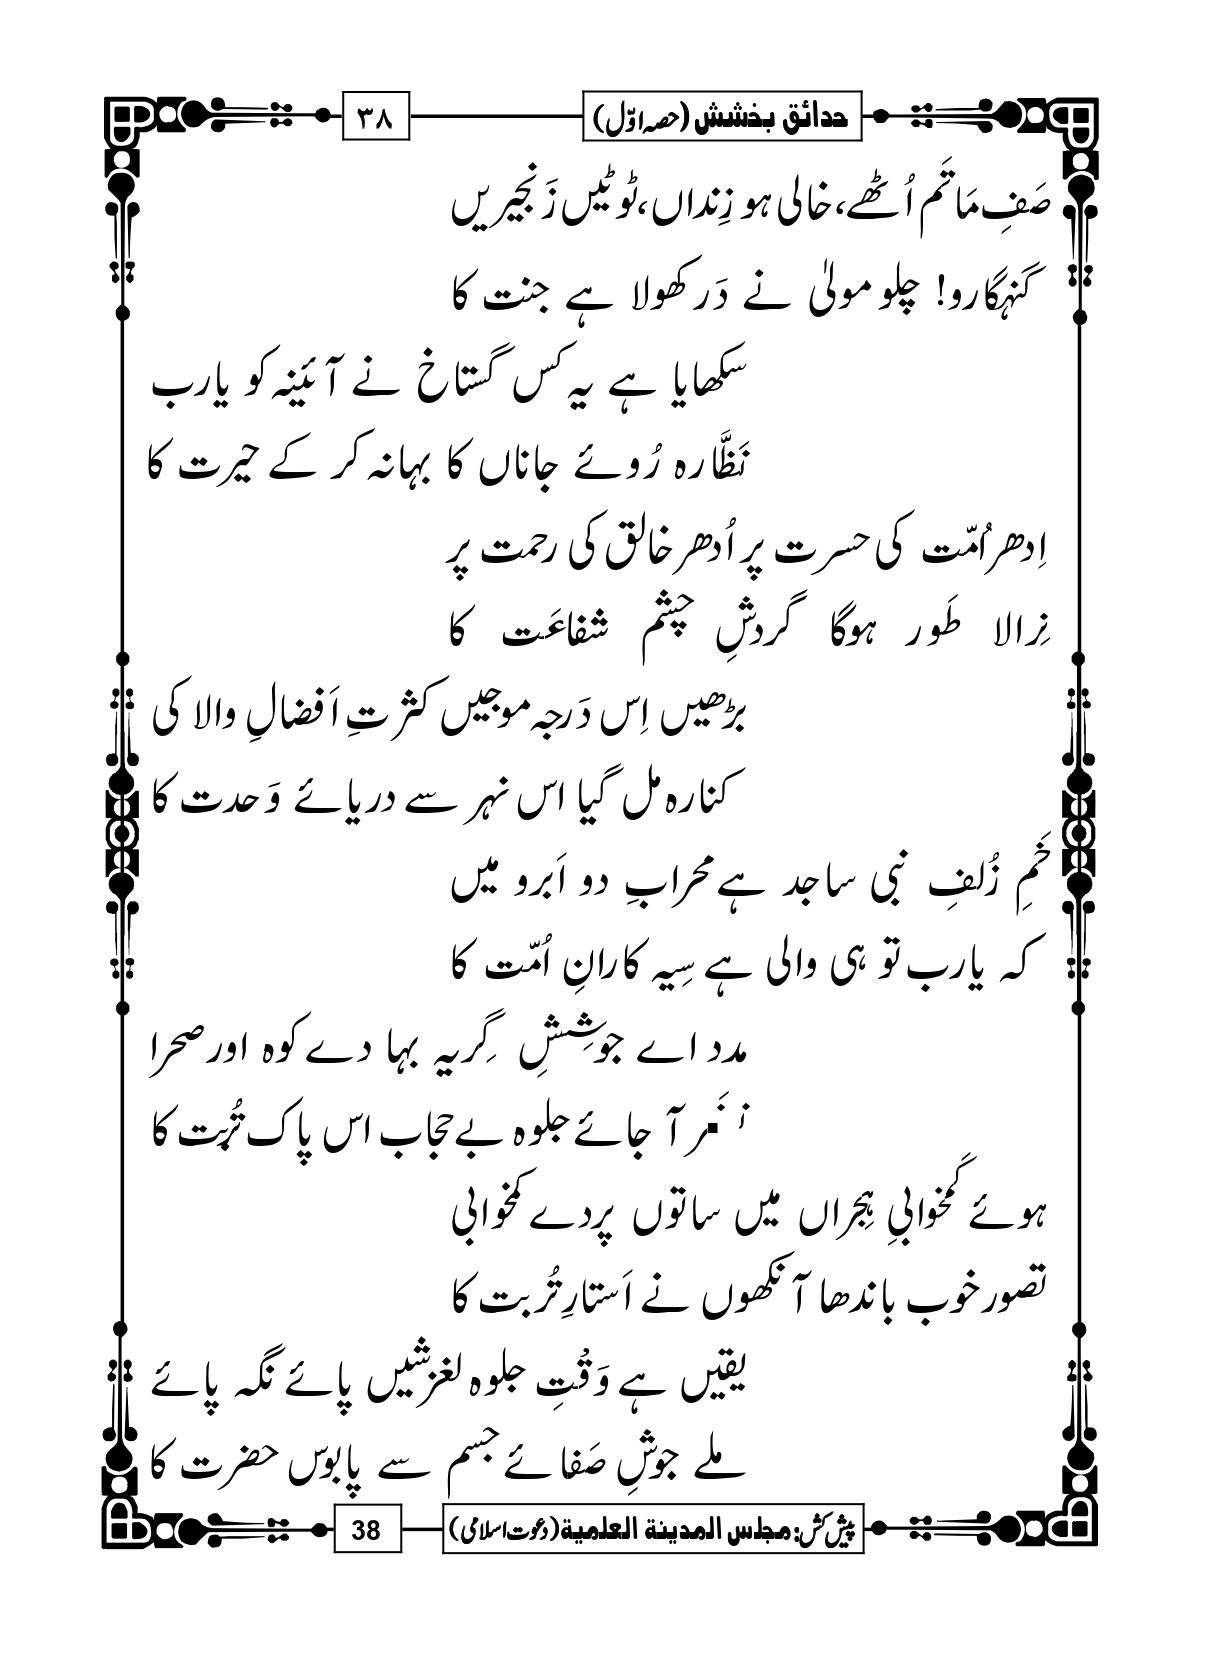 حدائق بخشش (حصہ اوّل)
٣٨
صَفِ مَاتَم اُٹھے، خالی ہو زِنداں، ٹوٹیں زَنجیریں
گنہگارو! چلو مولیٰ نے دَر کھولا ہے جنت کا
سکھایا ہے یہ کس گستاخ نے آئینہ کو یارب
نَظَّارہ رُوئے جاناں کا بہانہ کر کے حیرت کا
اِدھر اُمّت کی حسرت پر اُدھر خالق کی رحمت پر
نِرالا طَور ہوگا گردشِ چشم شفاعَت کا
بڑھیں اِس دَرجہ موجیں کثرتِ اَفضالِ والا کی
کنارہ مل گیا اس نہر سے دریائے وَحدت کا
خَمِ زُلفِ نبی ساجد ہے محرابِ دو اَبرو میں
کہ یارب تو ہی والی ہے سِیہ کارانِ اُمّت کا
مدد اے جوشِشِ گِریہ بہا دے کوہ اور صحرا
آ جائے جلوہ بے حجاب اس پاک تُربت کا
ہوئے کَمخوابیِ ہِجراں میں ساتوں پردے کمخوابی
تصور خوب باندھا آنکھوں نے اَستارِ تُربت کا
یقیں ہے وَقْتِ جلوہ لغزشیں پائے نگہ پائے
ملے جوشِ صَفائے جسم سے پابوس حضرت کا
پیش کش: مجلس المدينة العلمية (دعوت اسلامی)
38